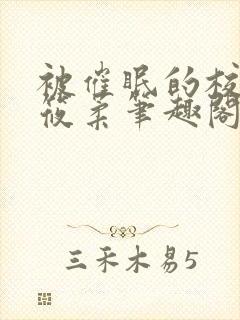 被催眠的校
筱柔笔趣阁
三禾木易5